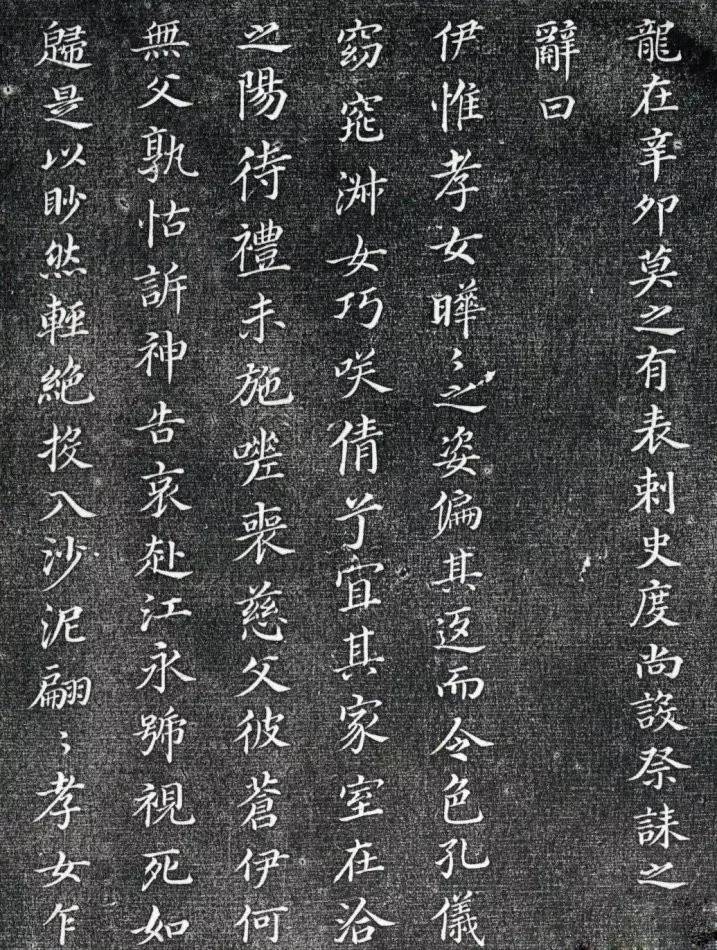 龍在辛卯莫之有表刺史度尚設祭誄之
辭曰
伊惟孝女曄〻之姿偏其返而令色孔儀
窈窕淋女巧咲倩兮宜其家室在洽
之陽待禮未施嗟喪慈父彼蒼伊何
無父孰怙訴神告哀赴江永號視死如
歸是以眇然輕絶投入沙泥翩〻孝女乍